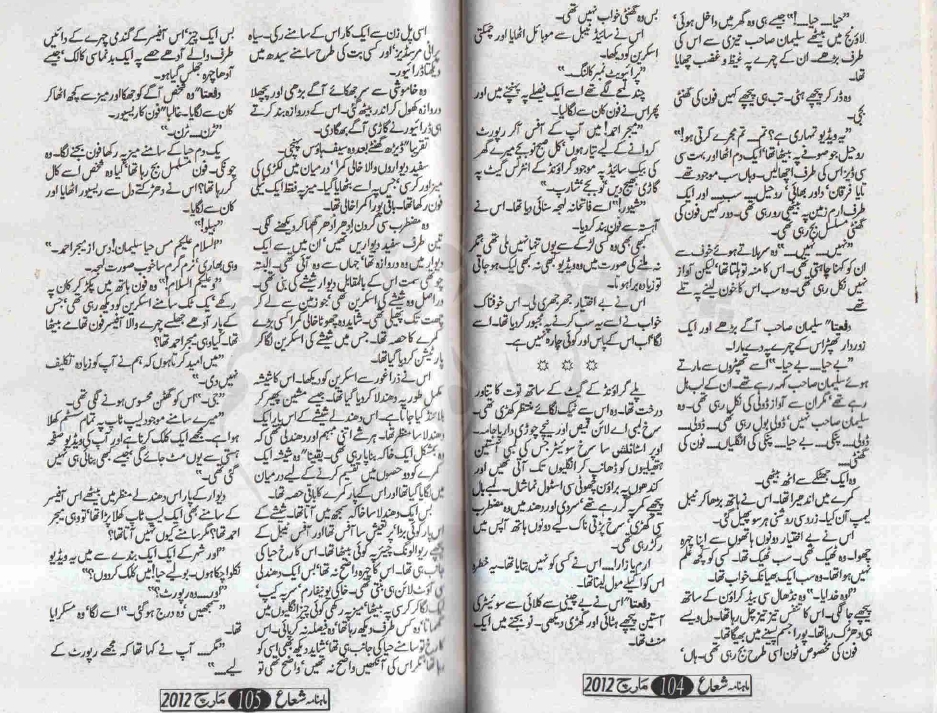 ”حیا... حیا...!“ جیسے ہی وہ گھر میں داخل ہوئی‘
لاؤنج میں بیٹھے سلیمان صاحب تیزی سے اس کی
طرف بڑھے۔ ان کے چہرے پہ غیظ و غضب چھایا
تھا۔
وہ ڈر کر پیچھے ہٹی۔ تب ہی پیچھے کہیں فون کی گھنٹی
بجی۔
”یہ ویڈیو تمہاری ہے؟ تم... تم مجرے کرتی ہو!“
روحیل جو صوفے پہ بیٹھا تھا‘ ایک دم اٹھا اور بہت سی
سی ڈیز اس کی طرف اچھالیں۔ وہاں سب موجود تھے۔
تایا فرقان‘ داور بھائی‘ روحیل... سب... اور ایک
طرف ارم زمین پہ بیٹھی رو رہی تھی۔ دور کہیں فون کی
گھنٹی مسلسل بج رہی تھی۔
”نہیں... نہیں...“ وہ سر ہلاتے ہوئے خوف سے
ان کو کہنا چاہتی تھی۔ اس کا منہ تو ہلتا تھا‘ لیکن آواز
نہیں نکل رہی تھی۔ وہ سب اس کا خون لینے پہ تلے
تھے۔
دفعتاً“ سلیمان صاحب آگے بڑھے اور ایک
زوردار تھپڑ اس کے چہرے پہ دے مارا۔
”بے حیا... بے حیا۔“ اسے تھپڑوں سے مارتے
ہوئے سلیمان صاحب کہہ رہے تھے۔ ان کے لب ہل
رہے تھے‘ مگر ان سے آواز ڈولی کی نکل رہی تھی۔ وہ
سلیمان صاحب نہیں‘ ڈولی بول رہی تھی۔ ڈولی...
ڈولی... پنکی... بے حیا... پنکی کی انگلیاں... فون کی
گھنٹی...
وہ ایک جھٹکے سے اٹھ بیٹھی۔
کمرے میں اندھیرا تھا۔ اس نے ہاتھ بڑھا کر ٹیبل
لیمپ آن کیا۔ زرد سی روشنی ہر سو پھیل گئی۔
اس نے بے اختیار دونوں ہاتھوں سے اپنا چہرہ
چھوا۔ وہ ٹھیک تھی۔ سب ٹھیک تھا۔ کسی کو کچھ علم
نہیں ہوا تھا۔ وہ سب ایک بھیانک خواب تھا۔
”اوہ خدایا۔“ وہ نڈھال سی بیڈ کراؤن کے ساتھ
پیچھے جا لگی۔ اس کا تنفس تیز تیز چل رہا تھا۔ دل ویسے
ہی دھڑک رہا تھا۔ پورا جسم پسینے میں بھیگا تھا۔
فون کی مخصوص ٹون اسی طرح بج رہی تھی۔ ہاں‘
بس وہ گھنٹی خواب نہیں تھی۔
اس نے سائیڈ ٹیبل سے موبائل اٹھایا اور چمکتی
اسکرین کو دیکھا۔
”پرائیویٹ نمبر کالنگ۔“
چند لمحے لگے تھے اسے ایک فیصلے پہ پہنچنے میں اور
پھر اس نے فون کان سے لگا لیا۔
”میجر احمد! میں آپ کے آفس آ کر رپورٹ
کروانے کے لیے تیار ہوں‘ کل صبح نو بجے میرے گھر
کی بیک سائیڈ پہ موجود گراؤنڈ کے انٹرنس گیٹ پہ
گاڑی بھیج دیں‘ نو بجے شارپ۔“
”شیور!“ اسے فاتحانہ لہجہ سنائی دیا تھا۔ اس نے
آہستہ سے فون بند کر دیا۔
کبھی بھی وہ کسی لڑکے سے یوں تنہا نہیں ملی تھی‘ مگر
نہ ملنے کی صورت میں وہ ویڈیو کبھی نہ کبھی لیک ہو جاتی
تو زیادہ برا ہوتا۔
اس نے بے اختیار جھرجھری لی۔ اس خوفناک
خواب نے اسے یہ سب کرنے پہ مجبور کر دیا تھا۔ اسے
لگا‘ اب اس کے پاس اور کوئی چارہ نہیں ہے۔
پلے گراؤنڈ کے گیٹ کے ساتھ توت کا تناور
درخت تھا۔ وہ اس سے ٹیک لگائے منتظر کھڑی تھی۔
سرخ لمبی اے لائن قمیص اور نیچے چوڑی دار پاجامہ۔
اوپر اسٹائلش سا سرخ سویٹر جس کی لمبی آستینیں
ہتھیلیوں کو ڈھانپ کر انگلیوں تک آتی تھیں اور
کندھوں پہ براؤن چھوٹی سی اسٹول نما شال۔ لمبے بال
پیچھے کمر پہ گر رہے تھے‘ سردی اور دھند میں وہ مضطرب
سی کھڑی‘ سرخ پڑتی ناک لیے دونوں ہاتھ آپس میں
رگڑ رہی تھی۔
ارم یا زارا... اس نے کسی کو نہیں بتایا تھا۔ یہ خطرہ
اس کو اکیلے مول لینا تھا۔
دفعتاً“ اس نے بے چینی سے کلائی سے سویٹر کی
آستین پیچھے ہٹائی اور گھڑی دیکھی۔ نو بجنے میں ایک
منٹ تھا۔
ماہنامہ شعاع 104 مارچ 2012
اسی پل زن سے ایک کار اس کے سامنے رکی۔ سیاہ
پرانی مرسڈیز‘ اور کسی بت کی طرح سامنے سیدھ میں
دیکھتا ڈرائیور۔
وہ خاموشی سے سر جھکائے آگے بڑھی اور پچھلا
دروازہ کھول کر اندر بیٹھ گئی۔ اس کے دروازہ بند کرتے
ہی ڈرائیور نے گاڑی آگے بھگا دی۔
تقریباً“ ڈیڑھ گھنٹے بعد وہ سیف ہاؤس پہنچی۔
سفید دیواروں والا خالی کمرا‘ درمیان میں لکڑی کی
میز اور کرسی‘ جس پہ اسے بٹھایا گیا۔ میز پہ فقط ایک ٹیلی
فون رکھا تھا۔ باقی پورا کمرا خالی تھا۔
وہ مضطرب سی گردن ادھر ادھر گھما کر دیکھنے لگی۔
تین طرف سفید دیواریں تھیں‘ ان میں سے ایک
دیوار میں وہ دروازہ تھا‘ جہاں سے وہ آئی تھی۔ البتہ
چوتھی سمت اس کے بالمقابل دیوار شیشے کی بنی تھی۔
دراصل وہ شیشے کی اسکرین تھی‘ جو زمین سے لے کر
چھت تک پھیلی تھی۔ شاید وہ چھوٹا خالی کمرا کسی بڑے
کمرے کا حصہ تھا۔ جس میں شیشے کی اسکرین لگا کر
پارٹیشن کر دیا گیا تھا۔
اس نے ذرا غور سے اسکرین کو دیکھا۔ اس کا شیشہ
مکمل طور پہ دھندلا کر دیا گیا تھا۔ جیسے مشین پھیر کر
بلائنڈ کیا جاتا ہے۔ اس دھندلے شیشے کے اس پار ایک
دھندلا سا منظر تھا۔ ہر شے اتنی مبہم اور دھندلی تھی کہ
وہ بمشکل ایک خاکہ بنا پا رہی تھی۔ یقیناً“ وہ شیشہ ایک
کمرے کو دو حصوں میں تقسیم کرنے کے لیے درمیان
میں لگایا گیا تھا اور اس کے پار کمرے کا باقی حصہ تھا۔
بس ایک دھندلا سا خاکہ سمجھ میں آتا تھا۔ شیشے کے
اس پار کوئی بڑا‘ پر تعیش سا آفس تھا اور آفس ٹیبل کے
پیچھے ریوالونگ چیئر پہ کوئی بیٹھا تھا۔ اس کا رخ حیا کی
جانب ہی تھا۔ اس کا چہرہ واضح نہ تھا‘ بس ایک دھندلی
سی آؤٹ لائن ہی بنتی تھی۔ خاکی یونیفارم‘ سر پہ کیپ
ٹیک لگا کر کرسی پہ بیٹھا‘ میز پہ رکھی کوئی چیز انگلیوں میں
گھماتا‘ وہ کس طرف دیکھ رہا تھا‘ وہ فیصلہ نہ کر پائی۔ اس
کا رخ تو سامنے حیا کی جانب ہی تھا‘ شاید دیکھ بھی اسی کو
رہا تھا‘ مگر اس کی آنکھیں واضح نہ تھیں‘ واضح تھی تو
بس ایک چیز‘ اس آفیسر کے گندمی چہرے کے دائیں
طرف والے آدھے حصے پہ ایک بدنما سی کالک‘ جیسے
آدھا چہرہ جھلس گیا ہو۔
دفعتاً“ وہ شخص آگے کو جھکا اور میز سے کچھ اٹھا کر
کان سے لگایا۔ غالباً“ فون کا ریسیور۔
”ٹرن۔ ٹرن۔“
یک دم حیا کے سامنے میز پہ رکھا فون بجنے لگا۔ وہ
چونکی۔ فون مسلسل بج رہا تھا‘ کیا وہ شخص اسے کال
کر رہا تھا؟ اس نے دھڑکتے دل سے ریسیور اٹھایا اور
کان سے لگایا۔
”ہیلو!“
”السلام علیکم مس حیا سلیمان! دس از میجر احمد۔“
وہی بھاری‘ نرم گرم سا خوب صورت لہجہ۔
”وعلیکم السلام!“ وہ فون ہاتھ میں پکڑ کر کان پہ
رکھے‘ یک ٹک سامنے اسکرین کو دیکھ رہی تھی‘ جس
کے پار آدھے جھلسے چہرے والا آفیسر فون تھامے بیٹھا
تھا۔ کیا وہی میجر احمد تھا؟
”میں امید کرتا ہوں کہ ہم نے آپ کو زیادہ تکلیف
نہیں دی۔“
”جی۔“ اس کو گھٹن محسوس ہونے لگی تھی۔
”میرے سامنے موجود لیپ ٹاپ پہ تمام سسٹم کھلا
ہوا ہے۔ مجھے ایک کلک کرنا ہے اور آپ کی ویڈیو صفحہ
ہستی سے یوں مٹ جائے گی جیسے کبھی بنائی ہی نہیں
گئی تھی۔“
دیوار کے پار اس دھندلے منظر میں بیٹھے اس آفیسر
کے سامنے بھی ایک لیپ ٹاپ کھلا پڑا تھا‘ تو وہی میجر
احمد تھا؟ مگر سامنے کیوں نہیں آتا تھا؟
”اور شہر کے ایک ایک بندے سے میں یہ ویڈیو
نکلوا چکا ہوں۔ بولیے حیا! میں کلک کر دوں؟“
”اور... وہ رپورٹ؟“
”سمجھیں‘ وہ درج ہو گئی۔“ اسے لگا‘ وہ مسکرایا
تھا۔
”مگر... آپ نے کہا تھا کہ مجھے رپورٹ کے
لیے...“
ماہنامہ شعاع 105 مارچ 2012